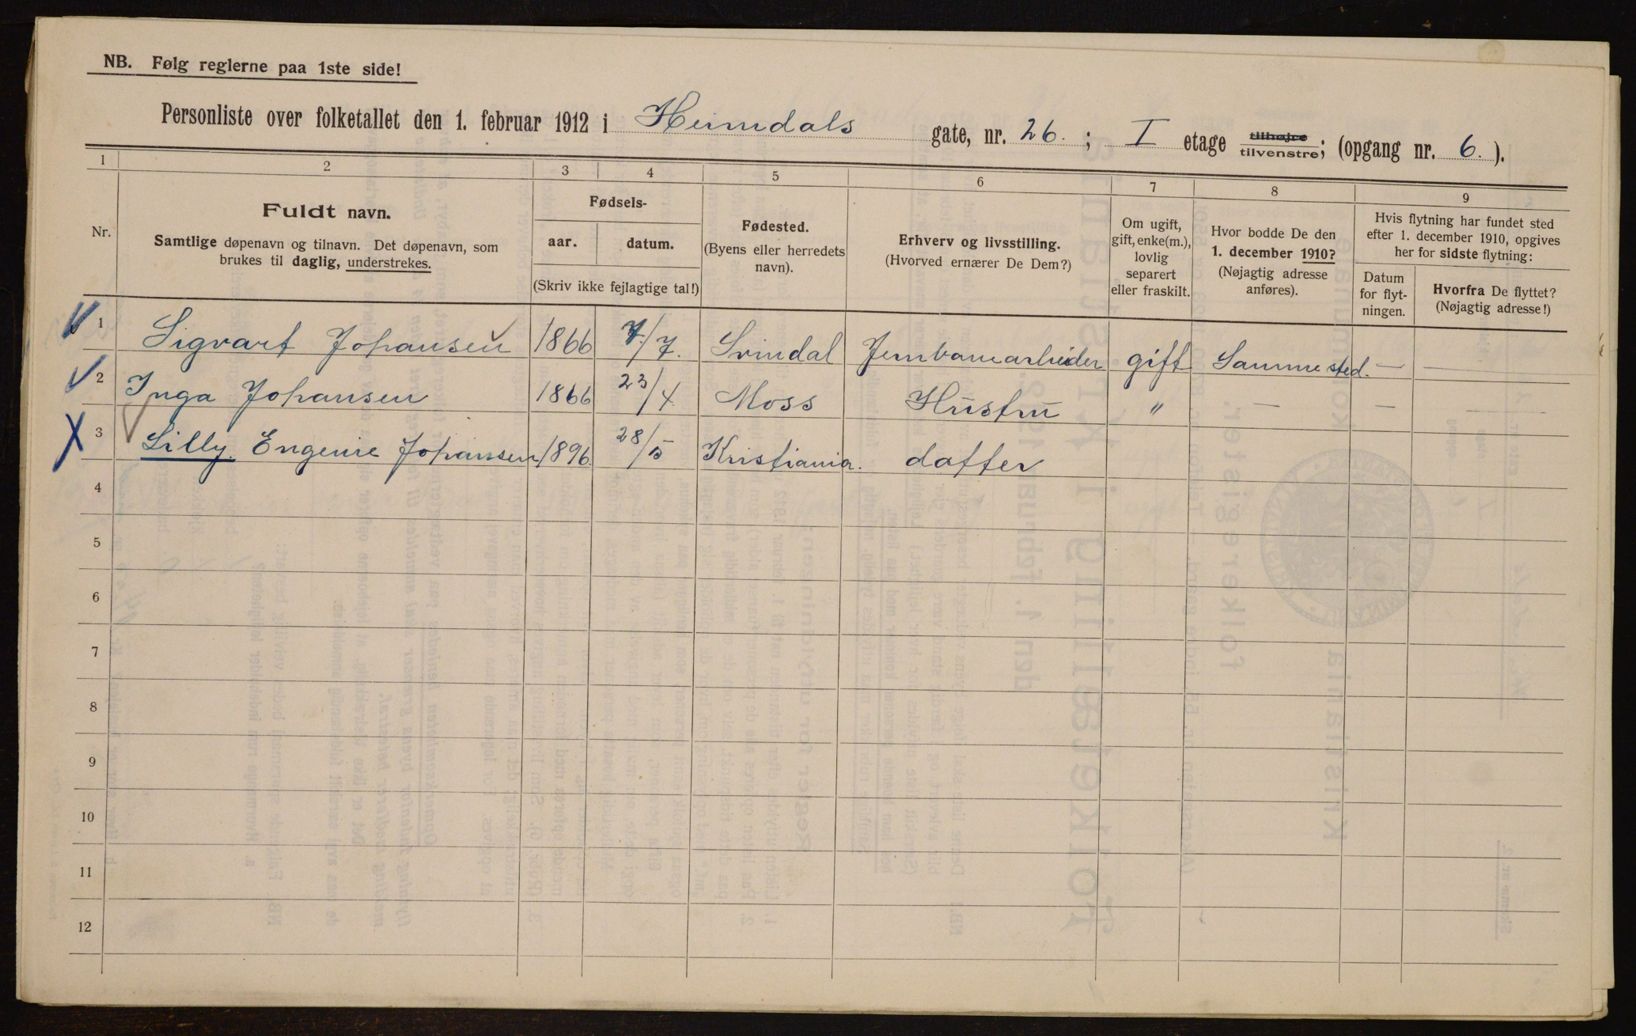 NB. Følg reglerne paa 1ste side!
Personliste over folketallet den 1. februar 1912 i Heimdals gate, nr. 26. ; I etage tilhøjre tilvenstre; (opgang nr. 6. ).
1 2 3 4 5 6 7 8 9
Nr.
Fuldt navn.
Samtlige døpenavn og tilnavn. Det døpenavn, som
brukes til daglig, understrekes.
Fødsels-
aar. datum.
(Skriv ikke fejlagtige tal!)
Fødested.
(Byens eller herredets
navn).
Erhverv og livsstilling.
(Hvorved ernærer De Dem?)
Om ugift,
gift, enke(m.),
lovlig
separert
eller fraskilt.
Hvor bodde De den
1. december 1910?
(Nøjagtig adresse
anføres).
Hvis flytning har fundet sted
efter 1. december 1910, opgives
her for sidste flytning:
Datum
for flyt-
ningen.
Hvorfra De flyttet?
(Nøjagtig adresse!)
1 Sigvart Johansen 1866 7/7. Svindal Jernbanearbeider gift Samme sted. —
2 Inga Johansen 1866 23/4 Moss Hustru " — — —
3 Lilly Engenie Johansen 1896 28/5 Kristiania. datter
4
5
6
7
8
9
10
11
12